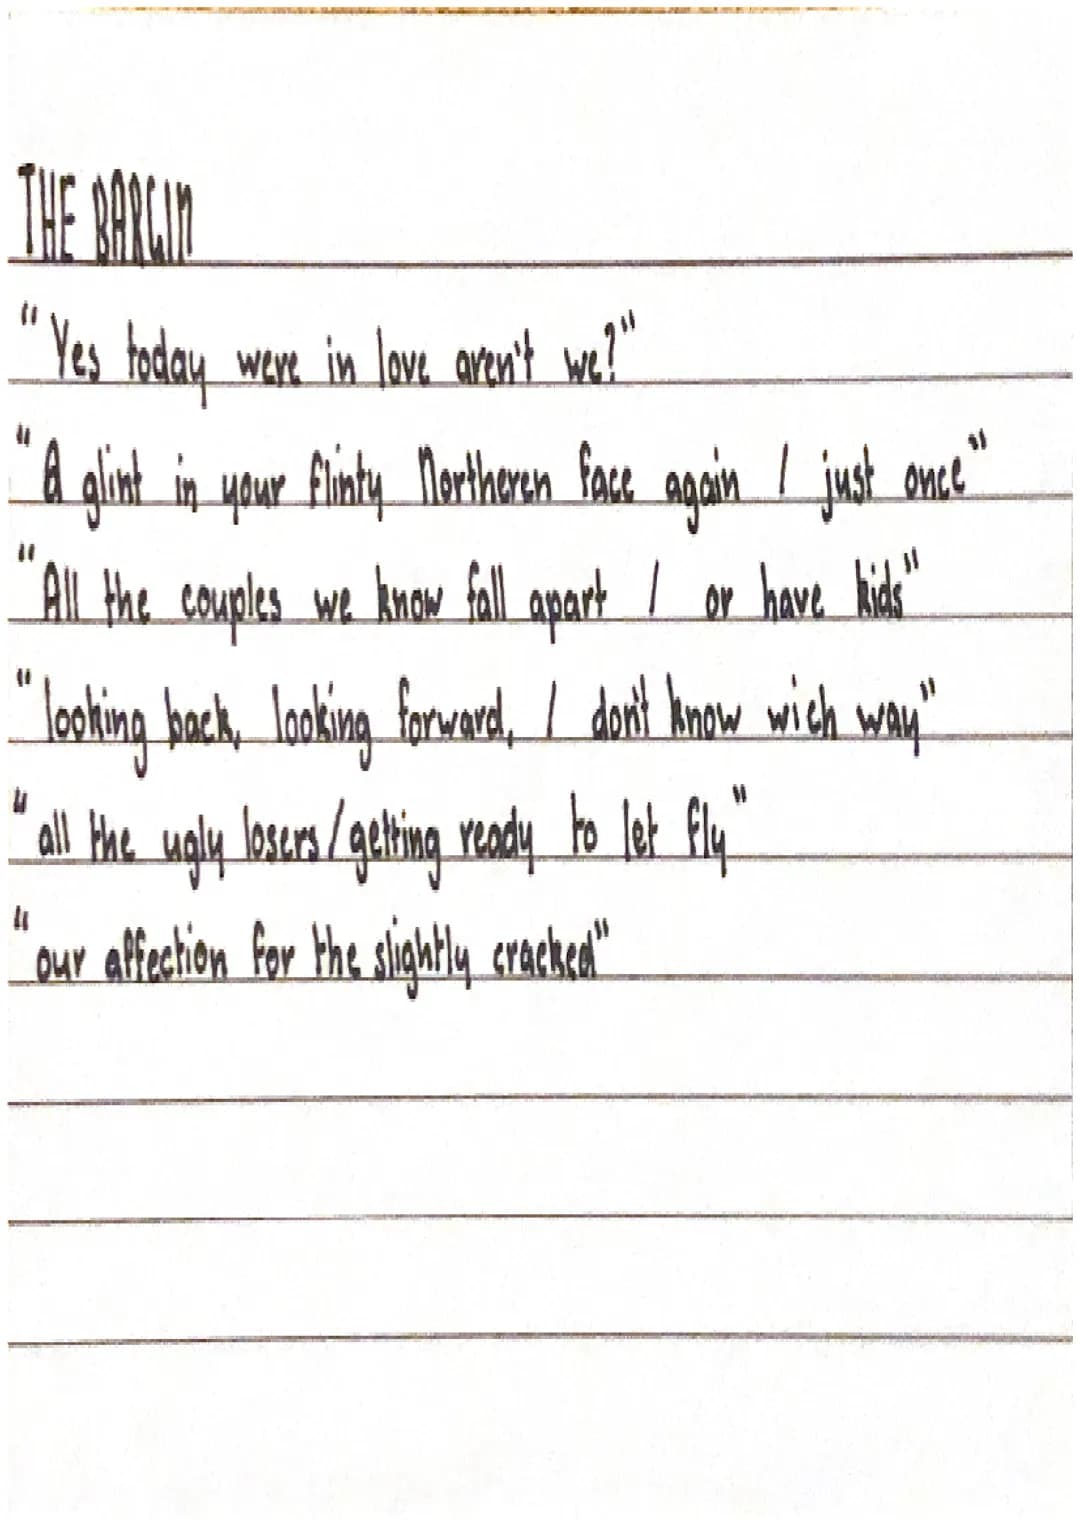 THE BARGIN
"Yes today were in love aren't we?"
"A glint in your flinty Northeren face again / just once"
"All the couples we know fall apart / or have kids"
"looking back, looking forward, / don't know wich way"
"all the ugly losers/getting ready to let fly"
"our affection for the slightly cracked"